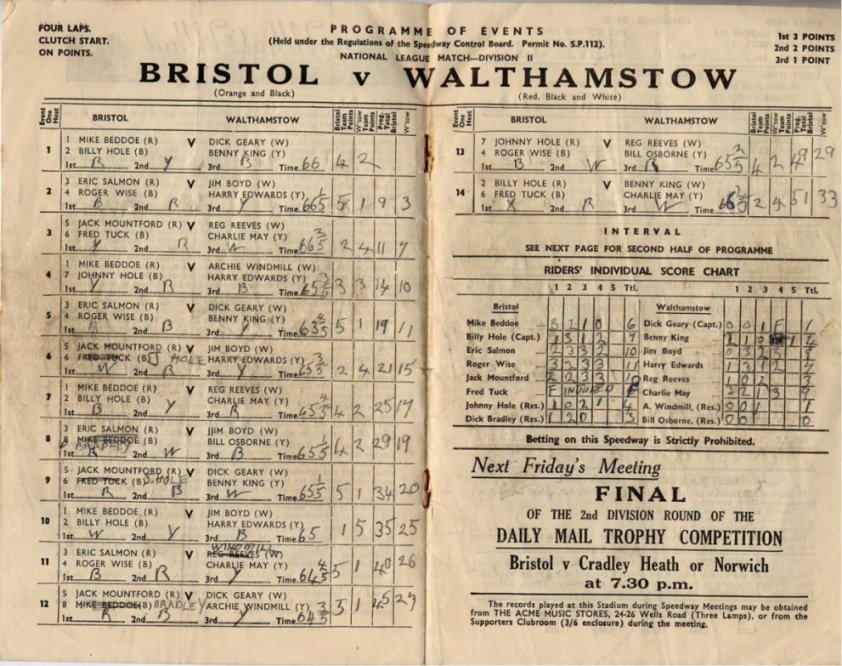 FOUR LAPS.
CLUTCH START.
ON POINTS.
PROGRAMME OF EVENTS
(Held under the Regulations of the Speedway Control Board. Permit No. S.P.112).
NATIONAL LEAGUE MATCH—DIVISION II
1st 3 POINTS
2nd 2 POINTS
3rd 1 POINT
BRISTOL v WALTHAMSTOW
(Orange and Black) (Red, Black and White)
Event One Heat BRISTOL WALTHAMSTOW Bristol Team Points W'tow Team Points Prog. Total Bristol W'tow
1 1 MIKE BEDDOE (R) V DICK GEARY (W)
2 BILLY HOLE (B) BENNY KING (Y)
1st B 2nd Y 3rd B Time 66 4 2
2 3 ERIC SALMON (R) V JIM BOYD (W)
4 ROGER WISE (B) HARRY EDWARDS (Y)
1st B 2nd R 3rd Y Time 66 1/5 5 1 9 3
3 5 JACK MOUNTFORD (R) V REG REEVES (W)
6 FRED TUCK (B) CHARLIE MAY (Y)
1st Y 2nd R 3rd W Time 66 2/5 2 4 11 7
4 1 MIKE BEDDOE (R) V ARCHIE WINDMILL (W)
7 JOHNNY HOLE (B) HARRY EDWARDS (Y)
1st Y 2nd R 3rd B Time 65 3/5 3 3 14 10
5 3 ERIC SALMON (R) V DICK GEARY (W)
4 ROGER WISE (B) BENNY KING (Y)
1st B 2nd B 3rd Y Time 63 4/5 5 1 19 11
6 5 JACK MOUNTFORD (R) V JIM BOYD (W)
6 FRED TUCK (B) J HOLE HARRY EDWARDS (Y)
1st W 2nd B 3rd Y Time 65 3/5 2 4 21 15
7 1 MIKE BEDDOE (R) V REG REEVES (W)
2 BILLY HOLE (B) CHARLIE MAY (Y)
1st B 2nd Y 3rd R Time 65 4/5 4 2 25 17
8 3 ERIC SALMON (R) V JJIM BOYD (W)
8 MIKE BEDDOE (B) BRADLEY BILL OSBORNE (Y)
1st R 2nd W 3rd B Time 65 5 4 2 29 19
9 5 JACK MOUNTFORD (R) V DICK GEARY (W)
6 FRED TUCK (B) J. HOLE BENNY KING (Y)
1st R 2nd B 3rd W Time 65 5 5 1 34 20
10 1 MIKE BEDDOE (R) V JIM BOYD (W)
2 BILLY HOLE (B) HARRY EDWARDS (Y)
1st W 2nd Y 3rd B Time 65 1 5 35 25
11 3 ERIC SALMON (R) V REG REEVES (W) WINDMILL
4 ROGER WISE (B) CHARLIE MAY (Y)
1st B 2nd R 3rd Y Time 64 4/5 5 1 40 26
12 5 JACK MOUNTFORD (R) V DICK GEARY (W)
8 MIKE BEDDOE (B) BRADLEY ARCHIE WINDMILL (Y)
1st R 2nd B 3rd Y Time 64 3/5 5 1 45 27
BRISTOL WALTHAMSTOW Bristol Team Points W'tow Team Points Prog. Total Bristol W'tow
13 7 JOHNNY HOLE (R) V REG REEVES (W)
4 ROGER WISE (B) BILL OSBORNE (Y)
1st B 2nd W 3rd R Time 65 2/5 4 2 49 29
14 2 BILLY HOLE (R) V BENNY KING (W)
6 FRED TUCK (B) CHARLIE MAY (Y)
1st Y 2nd R 3rd W Time 2 4 51 33
INTERVAL
SEE NEXT PAGE FOR SECOND HALF OF PROGRAMME
RIDERS' INDIVIDUAL SCORE CHART
1 2 3 4 5 Ttl. 1 2 3 4 5 Ttl.
Bristol Walthamstow
Mike Beddoe 3 2 1 0 6 Dick Geary (Capt.) 0 0 1 F 1
Billy Hole (Capt.) 1 3 1 2 Benny King 2 1 0 1 4
Eric Salmon 2 3 3 2 10 Jim Boyd 0 3 2 3 8
Roger Wise 3 2 3 3 11 Harry Edwards 1 3 1 2 7
Jack Mountford 2 2 3 3 10 Reg Reeves 1 0 2 3
Fred Tuck F INJURED F Charlie May 3 2 1 3 9
Johnny Hole (Res.) 1 0 2 1 4 A. Windmill, (Res.) 0 0 1 1
Dick Bradley (Res.) 1 2 0 3 Bill Osborne, (Res.) 0 0 0
Betting on this Speedway is Strictly Prohibited.
Next Friday's Meeting
FINAL
OF THE 2nd DIVISION ROUND OF THE
DAILY MAIL TROPHY COMPETITION
Bristol v Cradley Heath or Norwich
at 7.30 p.m.
The records played at this Stadium during Speedway Meetings may be obtained
from THE ACME MUSIC STORES, 24-26 Wells Road (Three Lamps), or from the
Supporters Clubroom (3/6 enclosure) during the meeting.